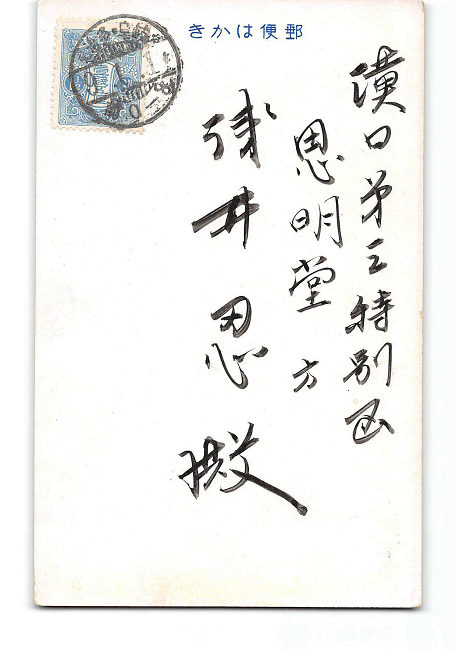 郵便はかき
漢口第三特別区
思明堂方
浅井忍殿